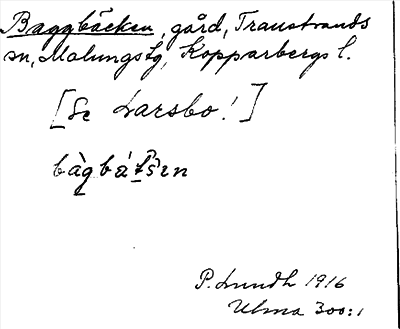 Baggbäcken, gård, Transtrands
sn, Malungs tg, Kopparbergs l.
[Se Larsbo!]
P. Lundh 1916
Ulma 300:1